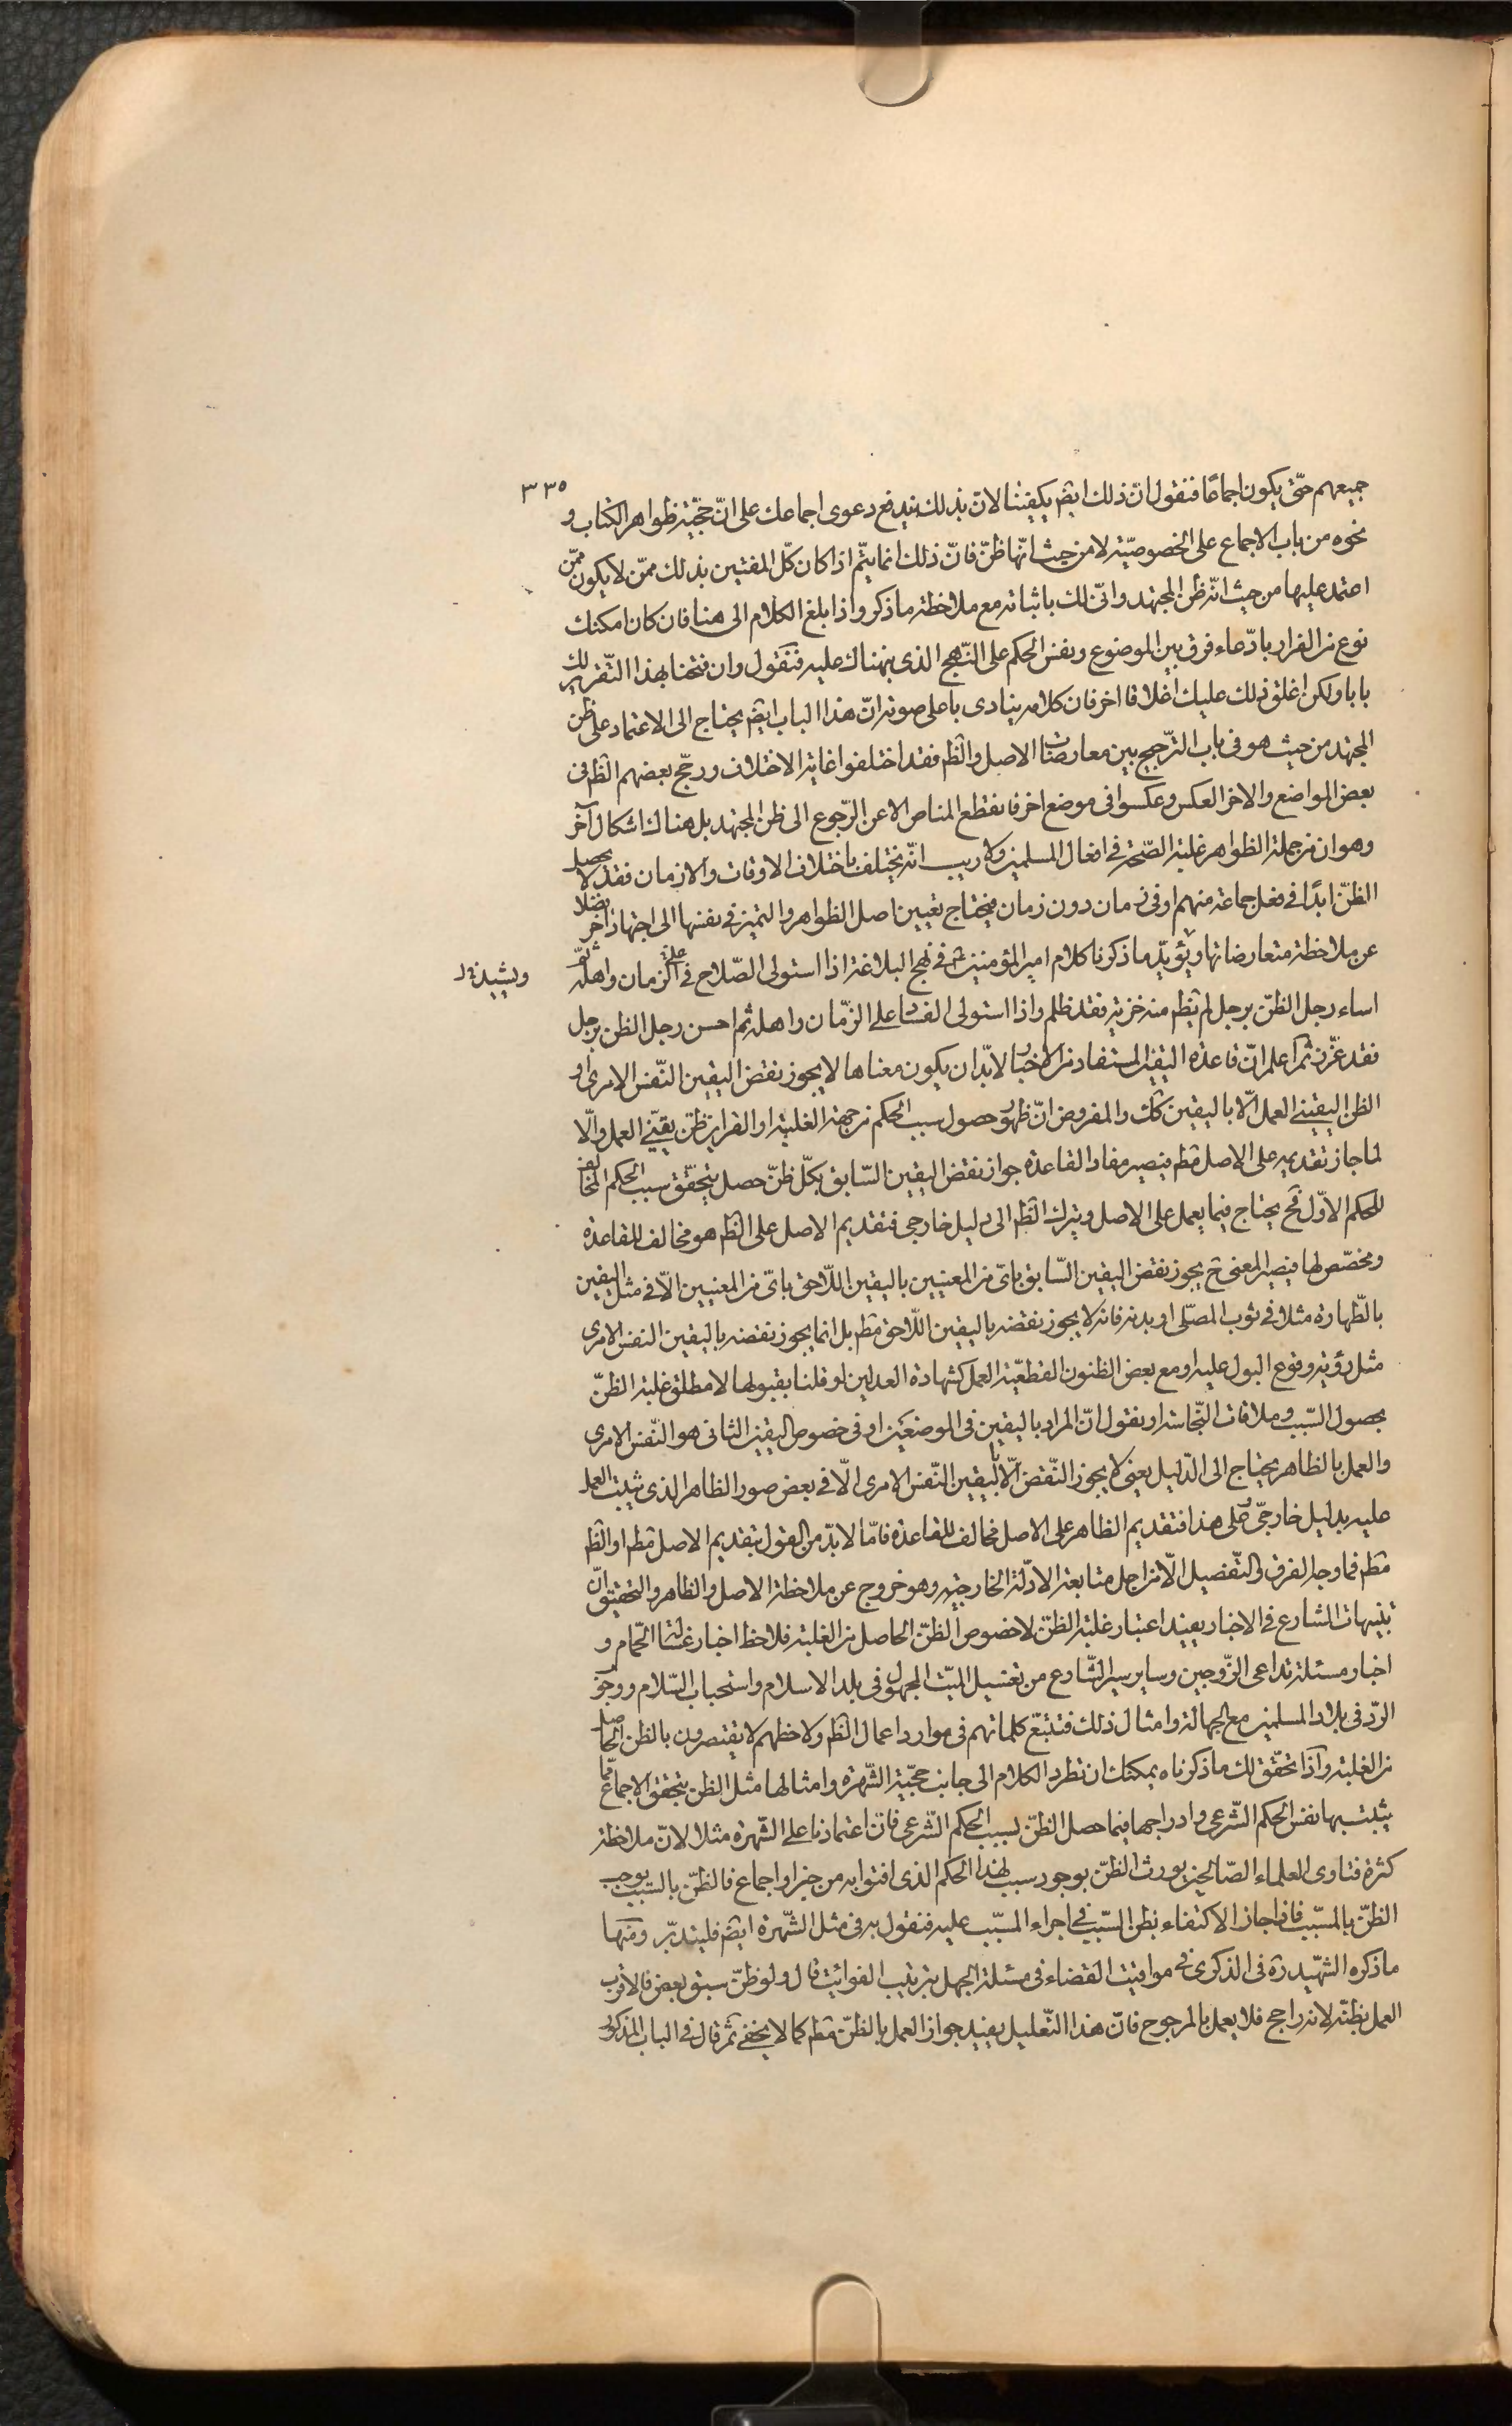 ٣٣٥
جميعهم حتّى يكون اجماعًا فنقول انّ ذلك ايضً يكفينا لانّ بذلك يندفع دعوى اجماعك على انّ حجّية ظواهر الكتاب و
نحوه من باب الاجماع على الخصوصيّة لا من حيث انّها ظنّ فانّ ذلك انما يتّم اذا كان كلّ المفتين بذلك ممّن لا يكون ممّن
اعتمد عليها من حيث انّه ظن المجتهد وانّى لك باثباته مع ملاحظة ما ذكر واذا بلغ الكلام الى هنا فان كان امكنك
نوع من الفرار بادّعاء فرق بين الموضوع ونفس الحكم على النّهج الذى نبهناك عليه فنقول وان فتحنا بهذا التّقرير لك
بابا ولكن اغلق ذلك عليك اغلاقا اخر فان كلامه ينادى باعلى صوته انّ هذا الباب ايضً يحتاج الى الاعتماد على ظن
المجتهد من حيث هو فى باب التّرجيح بين معارضات الاصل والظّم فقد اختلفوا غاية الاختلاف ورجّح بعضهم الظّم فى
بعض المواضع والاخر العكس وعكسوا فى موضع اخر فانقطع المناص الا عن الرّجوع الى ظن المجتهد بل هناك اشكال آخر
وهو ان من جملة الظواهر غلبة الصّحة فى افعال المسلمين ولا ريب انّه يختلف باختلاف الاوقات والازمان فقد لا يحصل
الظنّ ابدًا فى فعل جماعة منهم او فى زمان دون زمان فيحتاج تعيين اصل الظواهر والتميز فى نفسها الى اجتهاد اخر فضلا
عن ملاحظة متعارضاتها ويؤيّد ما ذكرنا كلام امير المؤمنين ع فى نهج البلاغة اذا استولى الصّلاح على الزّمان واهله ثمّ
ويشيّده
اساء رجل الظنّ برجل لم يظم منه خزية فقد ظلم واذا استولى الفساد على الزّمان واهله ثم احسن رجل الظن برجل
فقد غرّر ثم اعلم انّ قاعدة اليقين المستفاد من الاخبار لا بدّ ان يكون معناها لا يجوز نقض اليقين النّفس الامرى او
الظن اليقينى العمل الّا باليقين كك والمفروض انّ ظهور حصول سبب الحكم من جهة الغلبة او القراين ظنّ يقينّى العمل والّا
لما جاز تقديمه على الاصل مطم فيصير مفاد القاعدة جواز نقض اليقين السّابق بكلّ ظنّ حصل بتحقّق سبب الحكم المخالف
للحكم الاوّل فح يحتاج فيما يعمل على الاصل ويترك الظم الى دليل خارجى فتقديم الاصل على الظم هو مخالف للقاعدة
ومخصّص لها فيصير المعنى ح يجوز نقض اليقين السّابق باىّ من المعنيين باليقين اللّاحق باىّ من المعنيين الّا فى مثل اليقين
بالطّهارة مثلا فى ثوب المصلّى او بدنه فانه لا يجوز نقضه باليقين اللّاحق مطم بل انما يجوز نقضه باليقين النفس الامرى
مثل رؤية وقوع البول عليه او مع بعض الظنون القطعيّة العمل كشهادة العدلين لو قلنا بقبولها لا مطلق غلبة الظنّ
بحصول السّبب وملاقات النّجاسة او نقول انّ المراد باليقين فى الموضعين او فى خصوص اليقين الثانى هو النّفس الامرى
والعمل بالظاهر يحتاج الى الدّليل يعنى لا يجوز النّقض الّا باليقين النّفس الامرى الّا فى بعض صور الظاهر الذى يثبت العمل
عليه بدليل خارجىّ وعلى هذا فتقديم الظاهر على الاصل مخالف للقاعدة فامّا لا بدّ من القول بتقديم الاصل مطم او الظم
مطم فما وجه الفرق والتّفصيل الّا من اجل متابعة الادلّة الخارجيّه وهو خروج عن ملاحظة الاصل والظاهر والتحقيق انّ
تنبيهات الشارع فى الاخبار يفيد اعتبار غلبة الظنّ لا خصوص الظنّ الحاصل من الغلبة فلاحظ اخبار غسالة الحّمام و
اخبار مسئلة تداعى الزّوجين وساير سير الشّارع من تغسيل الميّت المجهول فى بلد الاسلام واستحباب السّلام ووجوب
الرّد فى بلاد المسلمين مع الجهالة وامثال ذلك فتتبّع كلماتهم فى موارد اعمال الظم ولاحظهم لا يقتصرون بالظن الحاصل
من الغلبة واذا تحقّق لك ما ذكرناه يمكنك ان تطرد الكلام الى جانب حجّية الشّهرة وامثالها مثل الظن بتحقق الاجماع فما
يثبت بها نفس الحكم الشّرعى وادراجها فيما حصل الظنّ لسبب الحكم الشّرعى فانّ اعتمادنا على الشّهرة مثلا لانّ ملاحظة
كثرة فتاوى العلماء الصّالحين يورث الظنّ بوجود سبب لهذا الحكم الذى افتوا به من خبر او اجماع فالظنّ بالسّبب يوجب
الظنّ بالمسّبب فاذا جاز الاكتفاء بظن السّبب فى اجراء المسّبب عليه فنقول به فى مثل الشّهرة ايضً فليتدبّر ومنها
ما ذكره الشّهيد ره فى الذكرى فى مواقيت القضاء فى مسئلة الجهل بترتيب الفوائت قال ولو ظنّ سبق بعض فالاقرب
العمل بظنّه لانه راجح فلا يعمل بالمرجوح فانّ هذا التّعليل يفيد جواز العمل بالظنّ مطم كما لا يخفى ثم قال فى الباب المذكور